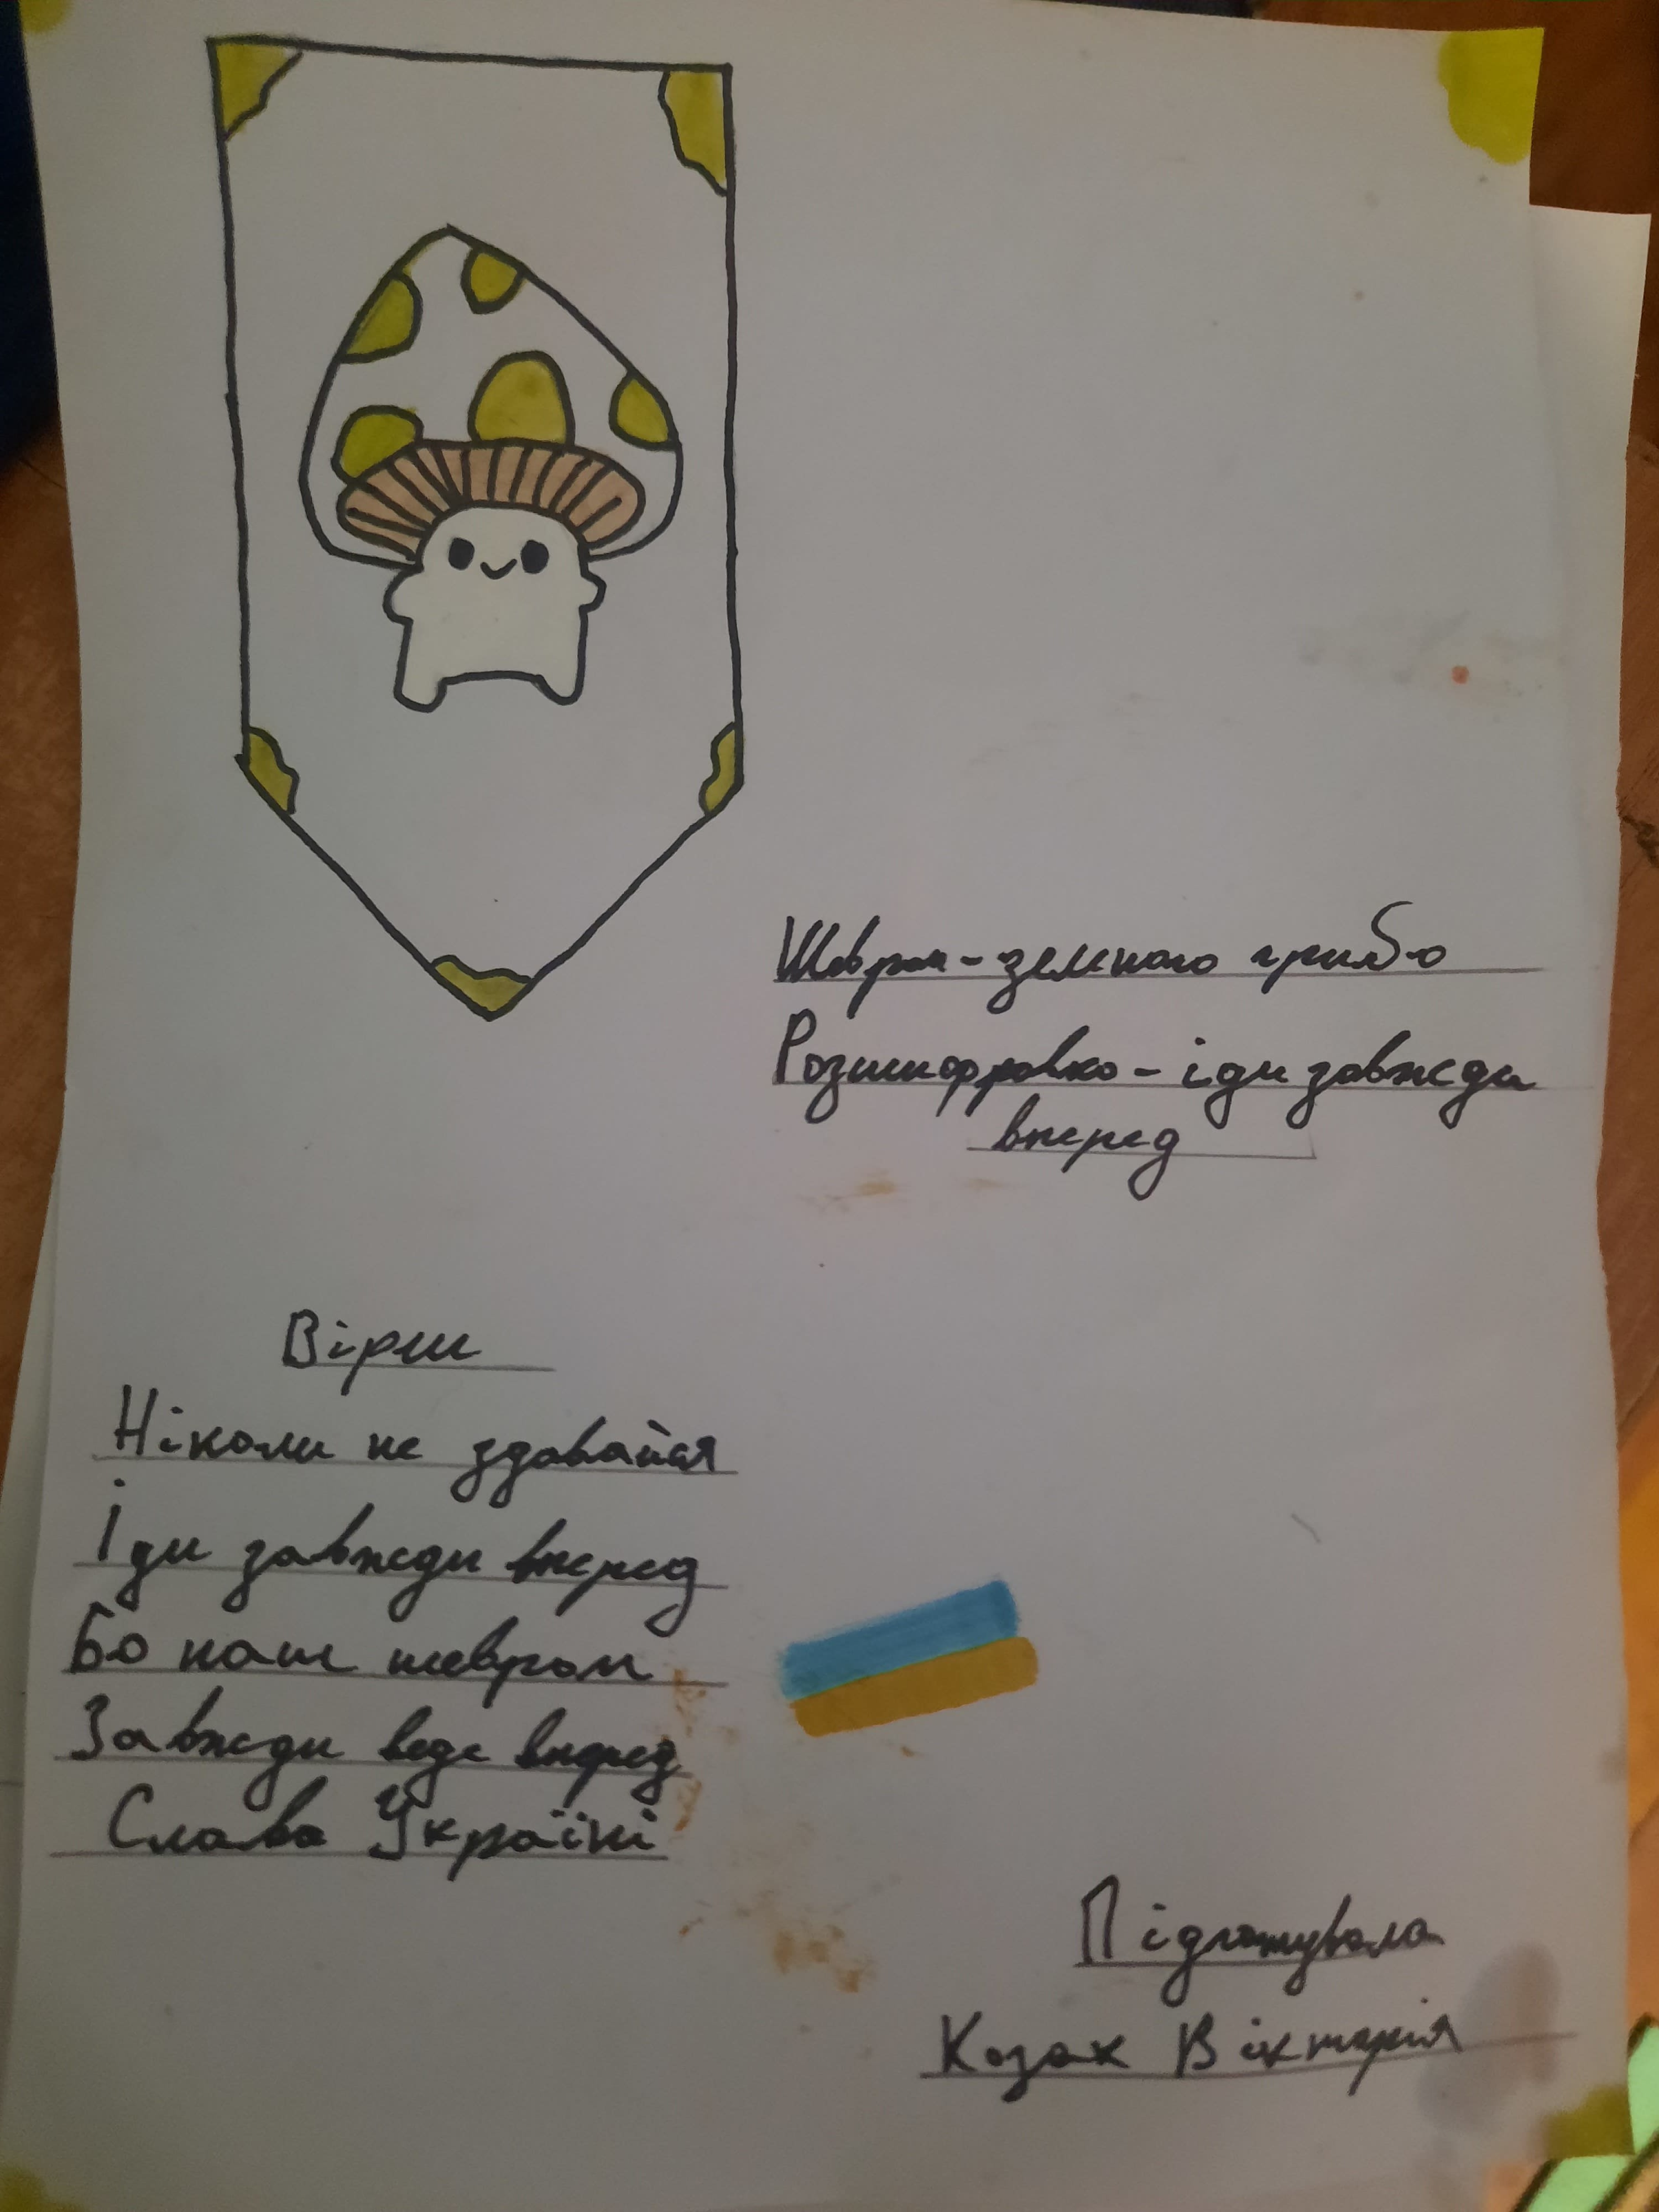 Шеврон - земного грибо
Розшифровка - іди завжди
вперед
Вірш
Ніколи не здавайся
Іди завжди вперед
Бо наш шеврон
Завжди веде вперед
Слава Україні
Підготувала
Козак Вікторія